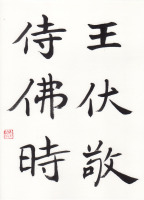 王伏敬
侍佛時